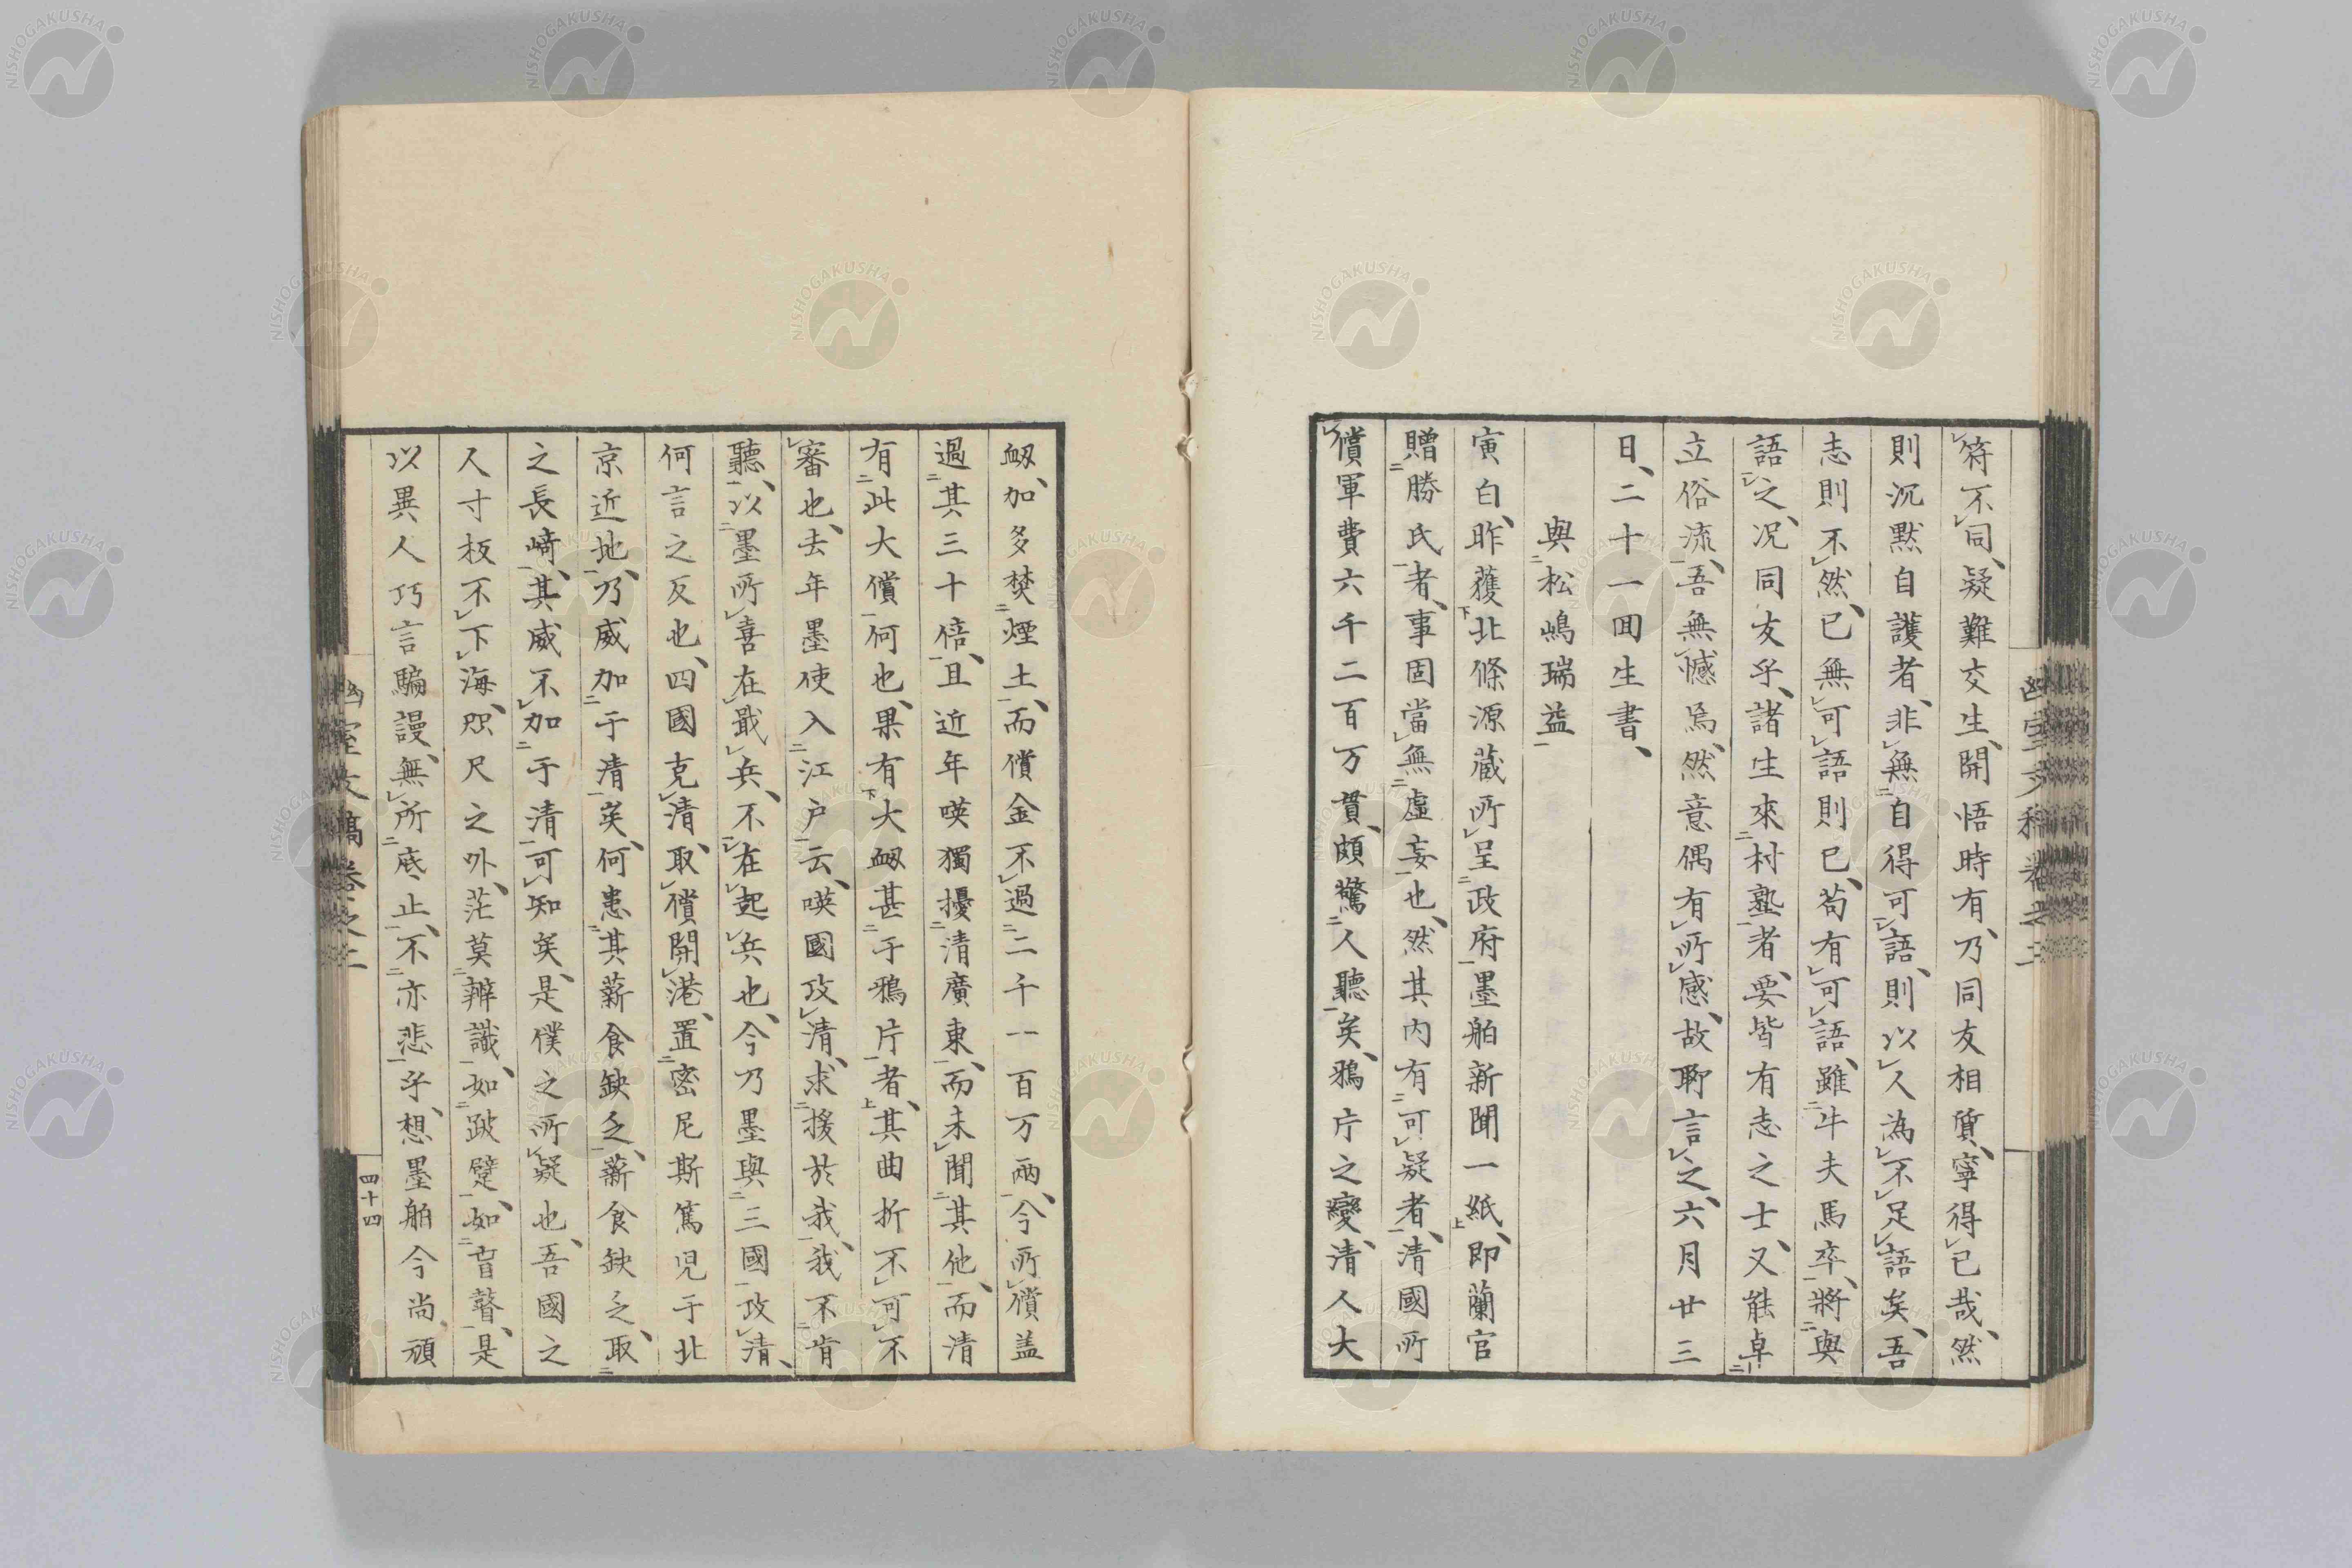 符不同、疑難交生、開悟時有、乃同友相質、寧得已哉、然
則沉黙自護者、非無自得可語、則以人為不足語矣、吾
志則不然、已無可語則已、苟有可語、雖牛夫馬卒、將與
語之、况同友乎、諸生來村塾者、要皆有志之士、又能卓
立俗流、吾無憾焉、然意偶有所感、故聊言之、六月廿三
日、二十一回生書、
與松嶋瑞益
寅白、昨獲北條源蔵所呈政府墨舶新聞一紙、即蘭官
贈勝氏者、事固當無虛妄也、然其内有可疑者、清國所
償軍費六千二百万貫、頗驚人聽矣、鴉片之變、清人大
衂、加多焚煙土、而償金不過二千一百万兩、今所償盖
過其三十倍、且近年暎獨擾清廣東、而未聞其他、而清
有此大償何也、果有大衂甚于鴉片者、其曲折不可不
審也、去年墨使入江戸云、暎國攻清、求援於我、我不肯
聽、以墨所喜在戢兵、不在起兵也、今乃墨與三國攻清、
何言之反也、四國克清、取償開港、置密尼斯篤児于北
京近地、乃威加于清矣、何患其薪食缺乏、薪食缺乏、取
之長﨑、其威不加于清可知矣、是僕之所疑也、吾國之
人寸板不下海、咫尺之外、茫莫辨識、如跛躄、如盲瞽、是
以異人巧言騙謾、無所底止、不亦悲乎、想墨舶今尚頑
幽室文稿卷之二
四十四